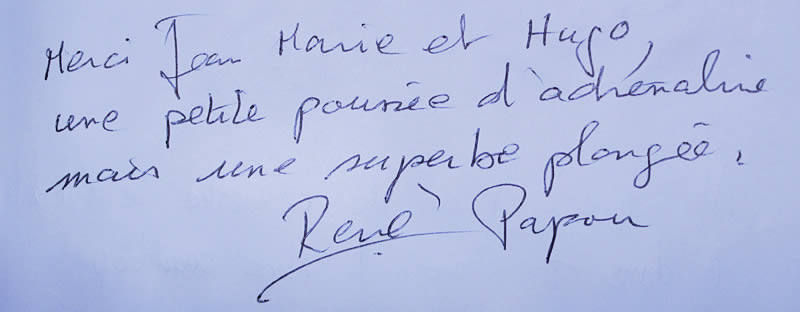 Merci Jean Marie et Hugo,
une petite poussée d'adrénaline
mais une superbe plongée.
René Papou